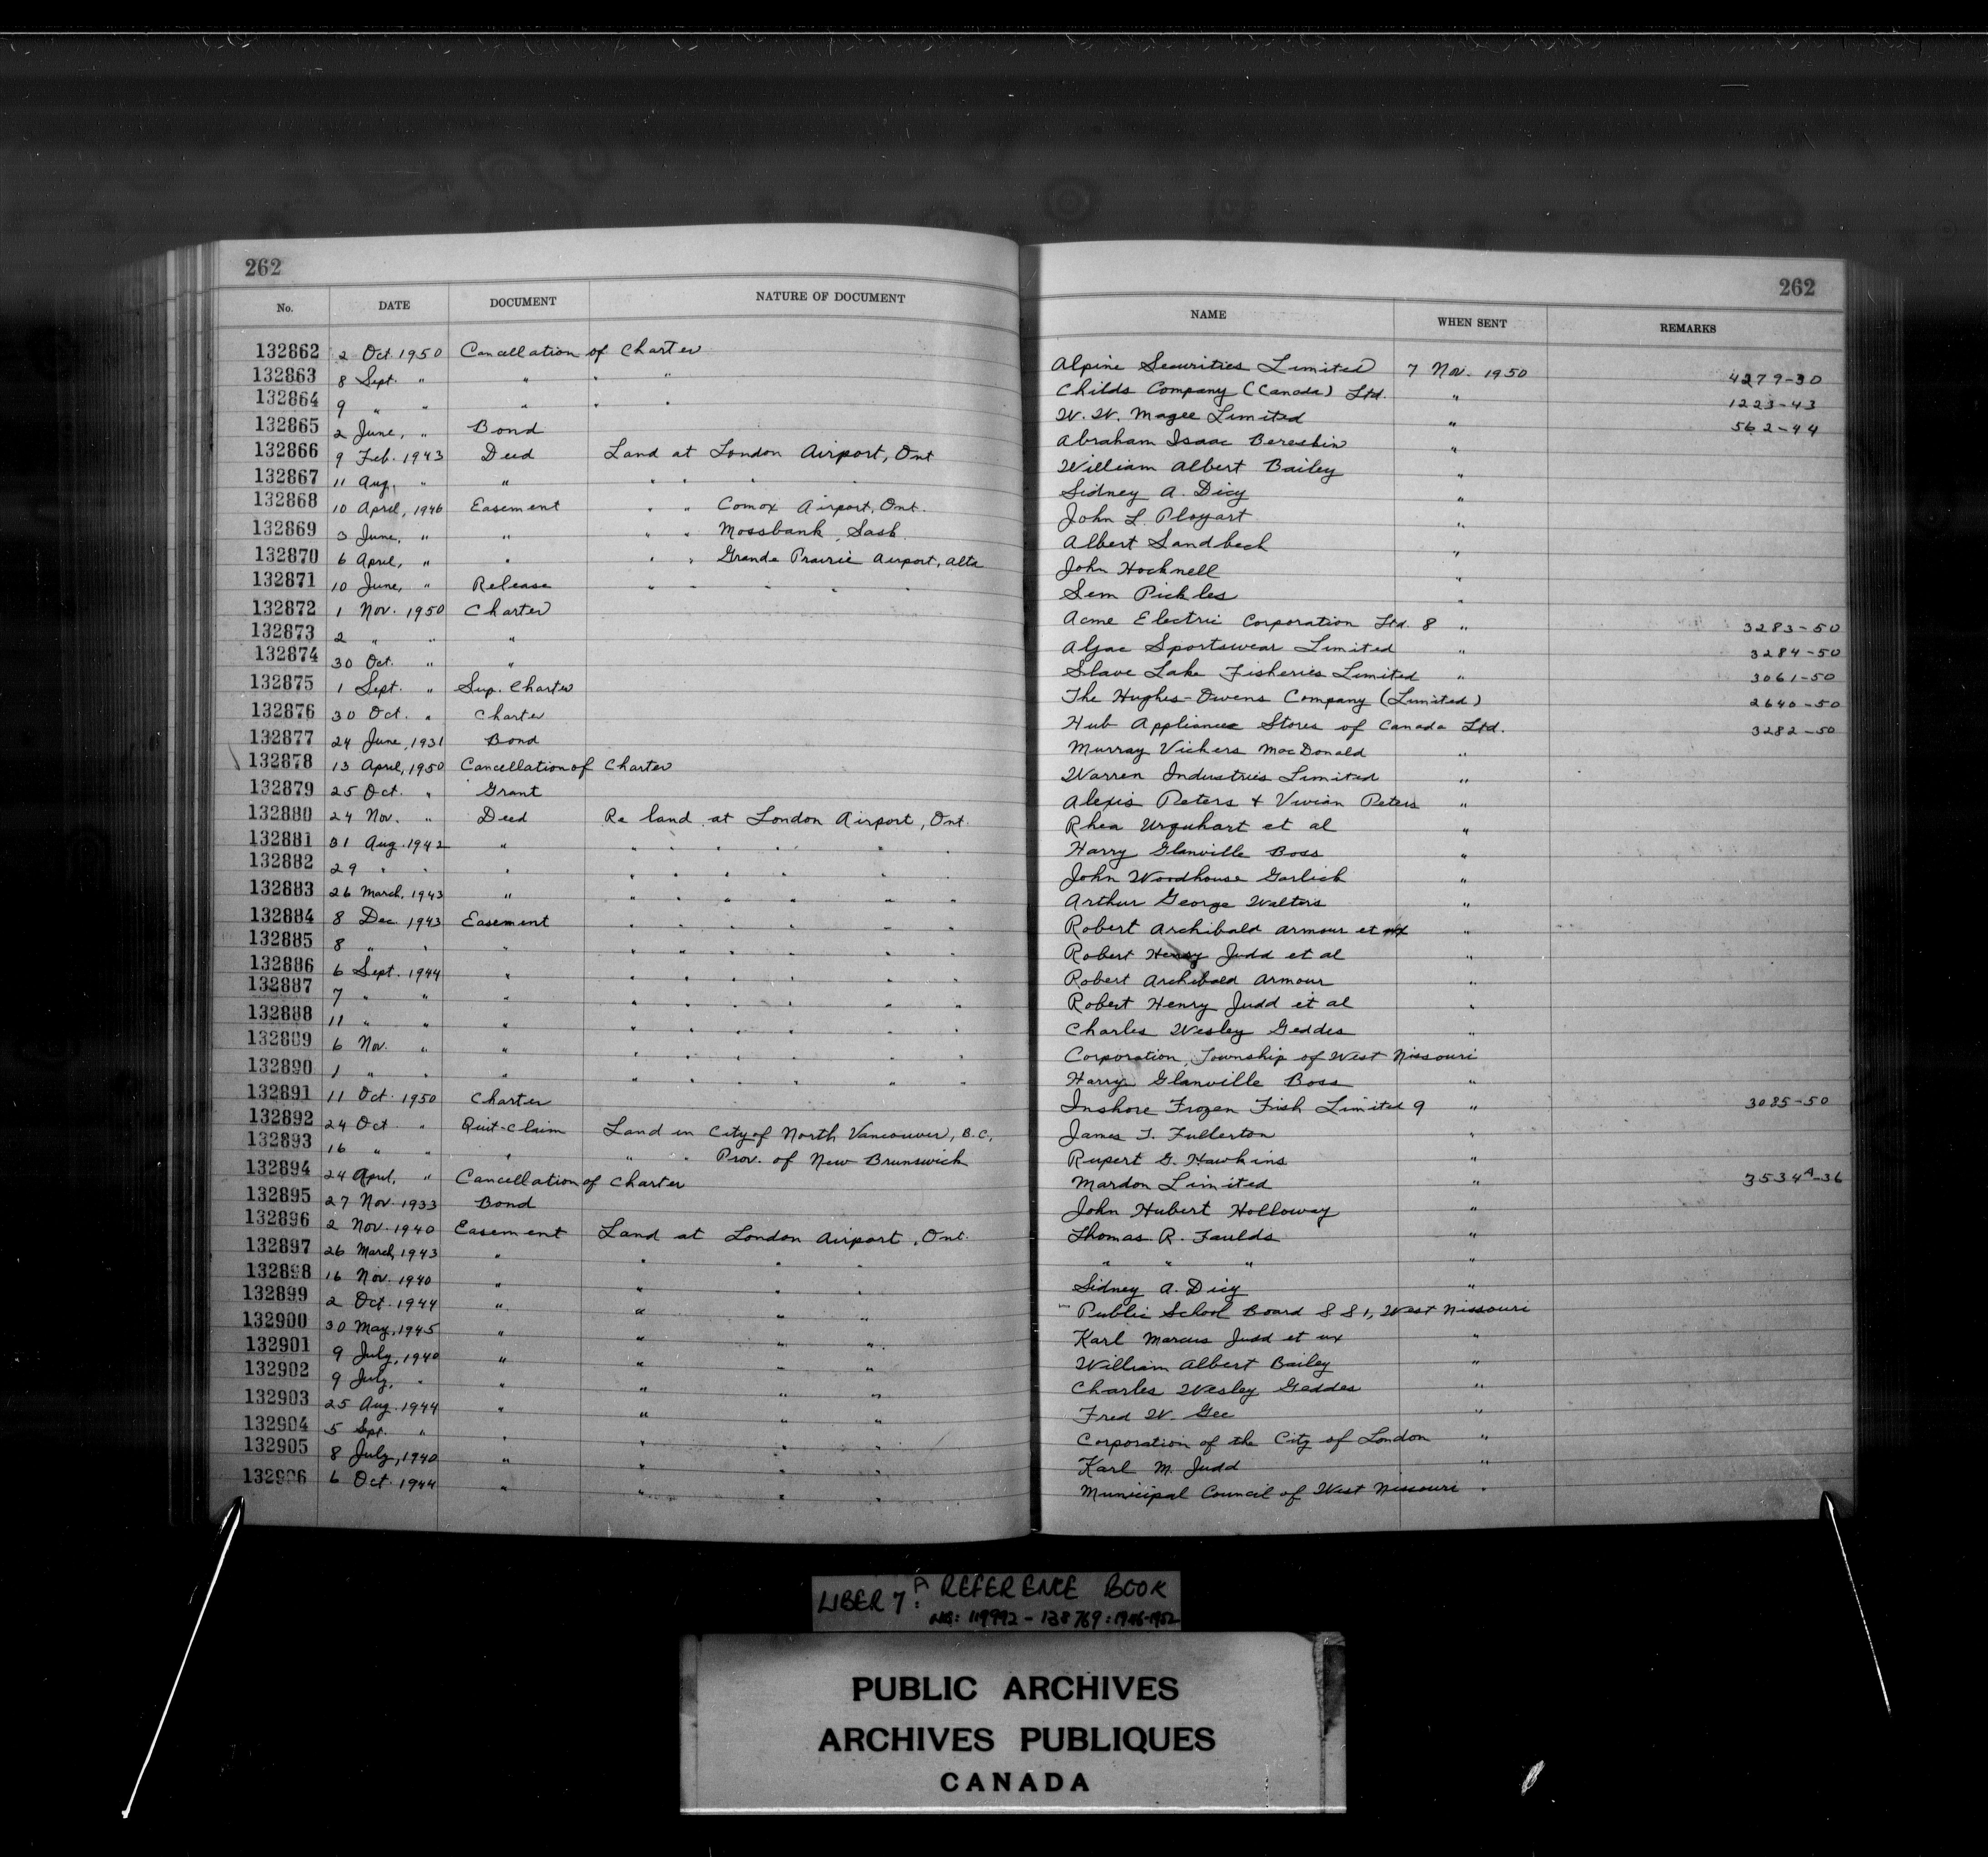 262
262
No. DATE DOCUMENT NATURE OF DOCUMENT NAME WHEN SENT REMARKS
132862 2 Oct. 1950 Cancellation of Charter Alpine Securities Limited 7 Nov. 1950 4279-30
132863 8 Sept. " " " " Childs Company (Canada) Ltd. " 1223-43
132864 9 " " " " " W. W. Magee Limited " 562-44
132865 2 June, " Bond Abraham Isaac Bereskin "
132866 9 Feb. 1943 Deed Land at London Airport, Ont William Albert Bailey "
132867 11 Aug. " " " " " " Sidney A. Dicy "
132868 10 April, 1946 Easement " " Comox Airport, Ont. John L. Ployart "
132869 3 June, " " " " Mossbank, Sask. Albert Sandbeck "
132870 6 April, " " " " Grande Prairie Airport, Alta John Hocknell "
132871 10 June, " Release " " " " " Sem Pickles "
132872 1 Nov. 1950 Charter Acme Electric Corporation Ltd. 8 " 3283-50
132873 2 " " " Aljac Sportswear Limited " 3284-50
132874 30 Oct. " " Slave Lake Fisheries Limited " 3061-50
132875 1 Sept. " Sup. Charter The Hughes-Owens Company (Limited) 2640-50
132876 30 Oct. " Charter Hub Appliance Stores of Canada Ltd. 3282-50
132877 24 June, 1931 Bond Murray Vickers MacDonald "
132878 13 April, 1950 Cancellation of Charter Warren Industries Limited "
132879 25 Oct. " Grant Alexis Peters & Vivian Peters "
132880 24 Nov. " Deed Re land at London Airport, Ont. Rhea Urquhart et al "
132881 31 Aug. 1942 " " " " " " " Harry Glanville Boss "
132882 29 " " " " " " " " " John Woodhouse Garlick "
132883 26 March, 1943 " " " " " " " Arthur George Walters "
132884 8 Dec. 1943 Easement " " " " " " Robert Archibald Armour et ux "
132885 8 " " " " " " " " " Robert Henry Judd et al "
132886 6 Sept. 1944 " " " " " " " Robert Archibald Armour "
132887 7 " " " " " " " " " Robert Henry Judd et al "
132888 11 " " " " " " " " " Charles Wesley Geddes "
132889 6 Nov. " " " " " " " " Corporation, Township of West Nissouri
132890 1 " " " " " " " " " Harry Glanville Boss "
132891 11 Oct. 1950 Charter Inshore Frozen Fish Limited 9 " 3085-50
132892 24 Oct. " Quit-Claim Land in City of North Vancouver, B.C. James T. Fullerton "
132893 16 " " " " " Prov. of New Brunswick Rupert G. Hawkins "
132894 24 April, " Cancellation of Charter Mardon Limited " 3534A-36
132895 27 Nov. 1933 Bond John Hubert Holloway "
132896 2 Nov. 1940 Easement Land at London Airport, Ont. Thomas R. Faulds "
132897 26 March, 1943 " " " " " " " "
132898 16 Nov. 1940 " " " " Sidney A. Dicy "
132899 2 Oct. 1944 " " " " Public School Board S S 1, West Nissouri
132900 30 May, 1945 " " " " Karl Marcus Judd et ux "
132901 9 July, 1940 " " " " William Albert Bailey "
132902 9 July, " " " " " Charles Wesley Geddes "
132903 25 Aug. 1944 " " " " Fred W. Gee "
132904 5 Sept. " " " " " Corporation of the City of London "
132905 8 July, 1940 " " " " Karl M. Judd "
132906 6 Oct. 1944 " " " " Municipal Council of West Nissouri "
LIBER 7A: REFERENCE BOOK
NOS: 119992 - 138769 : 1946-1952
PUBLIC ARCHIVES
ARCHIVES PUBLIQUES
CANADA